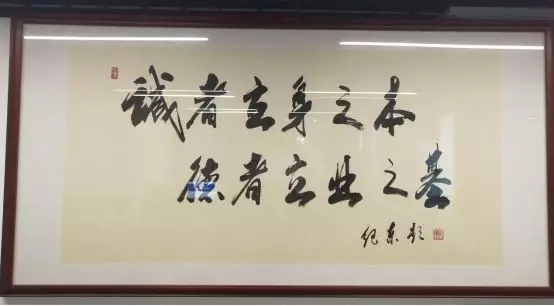 誠者立身之本
德者立业之基
纪东题